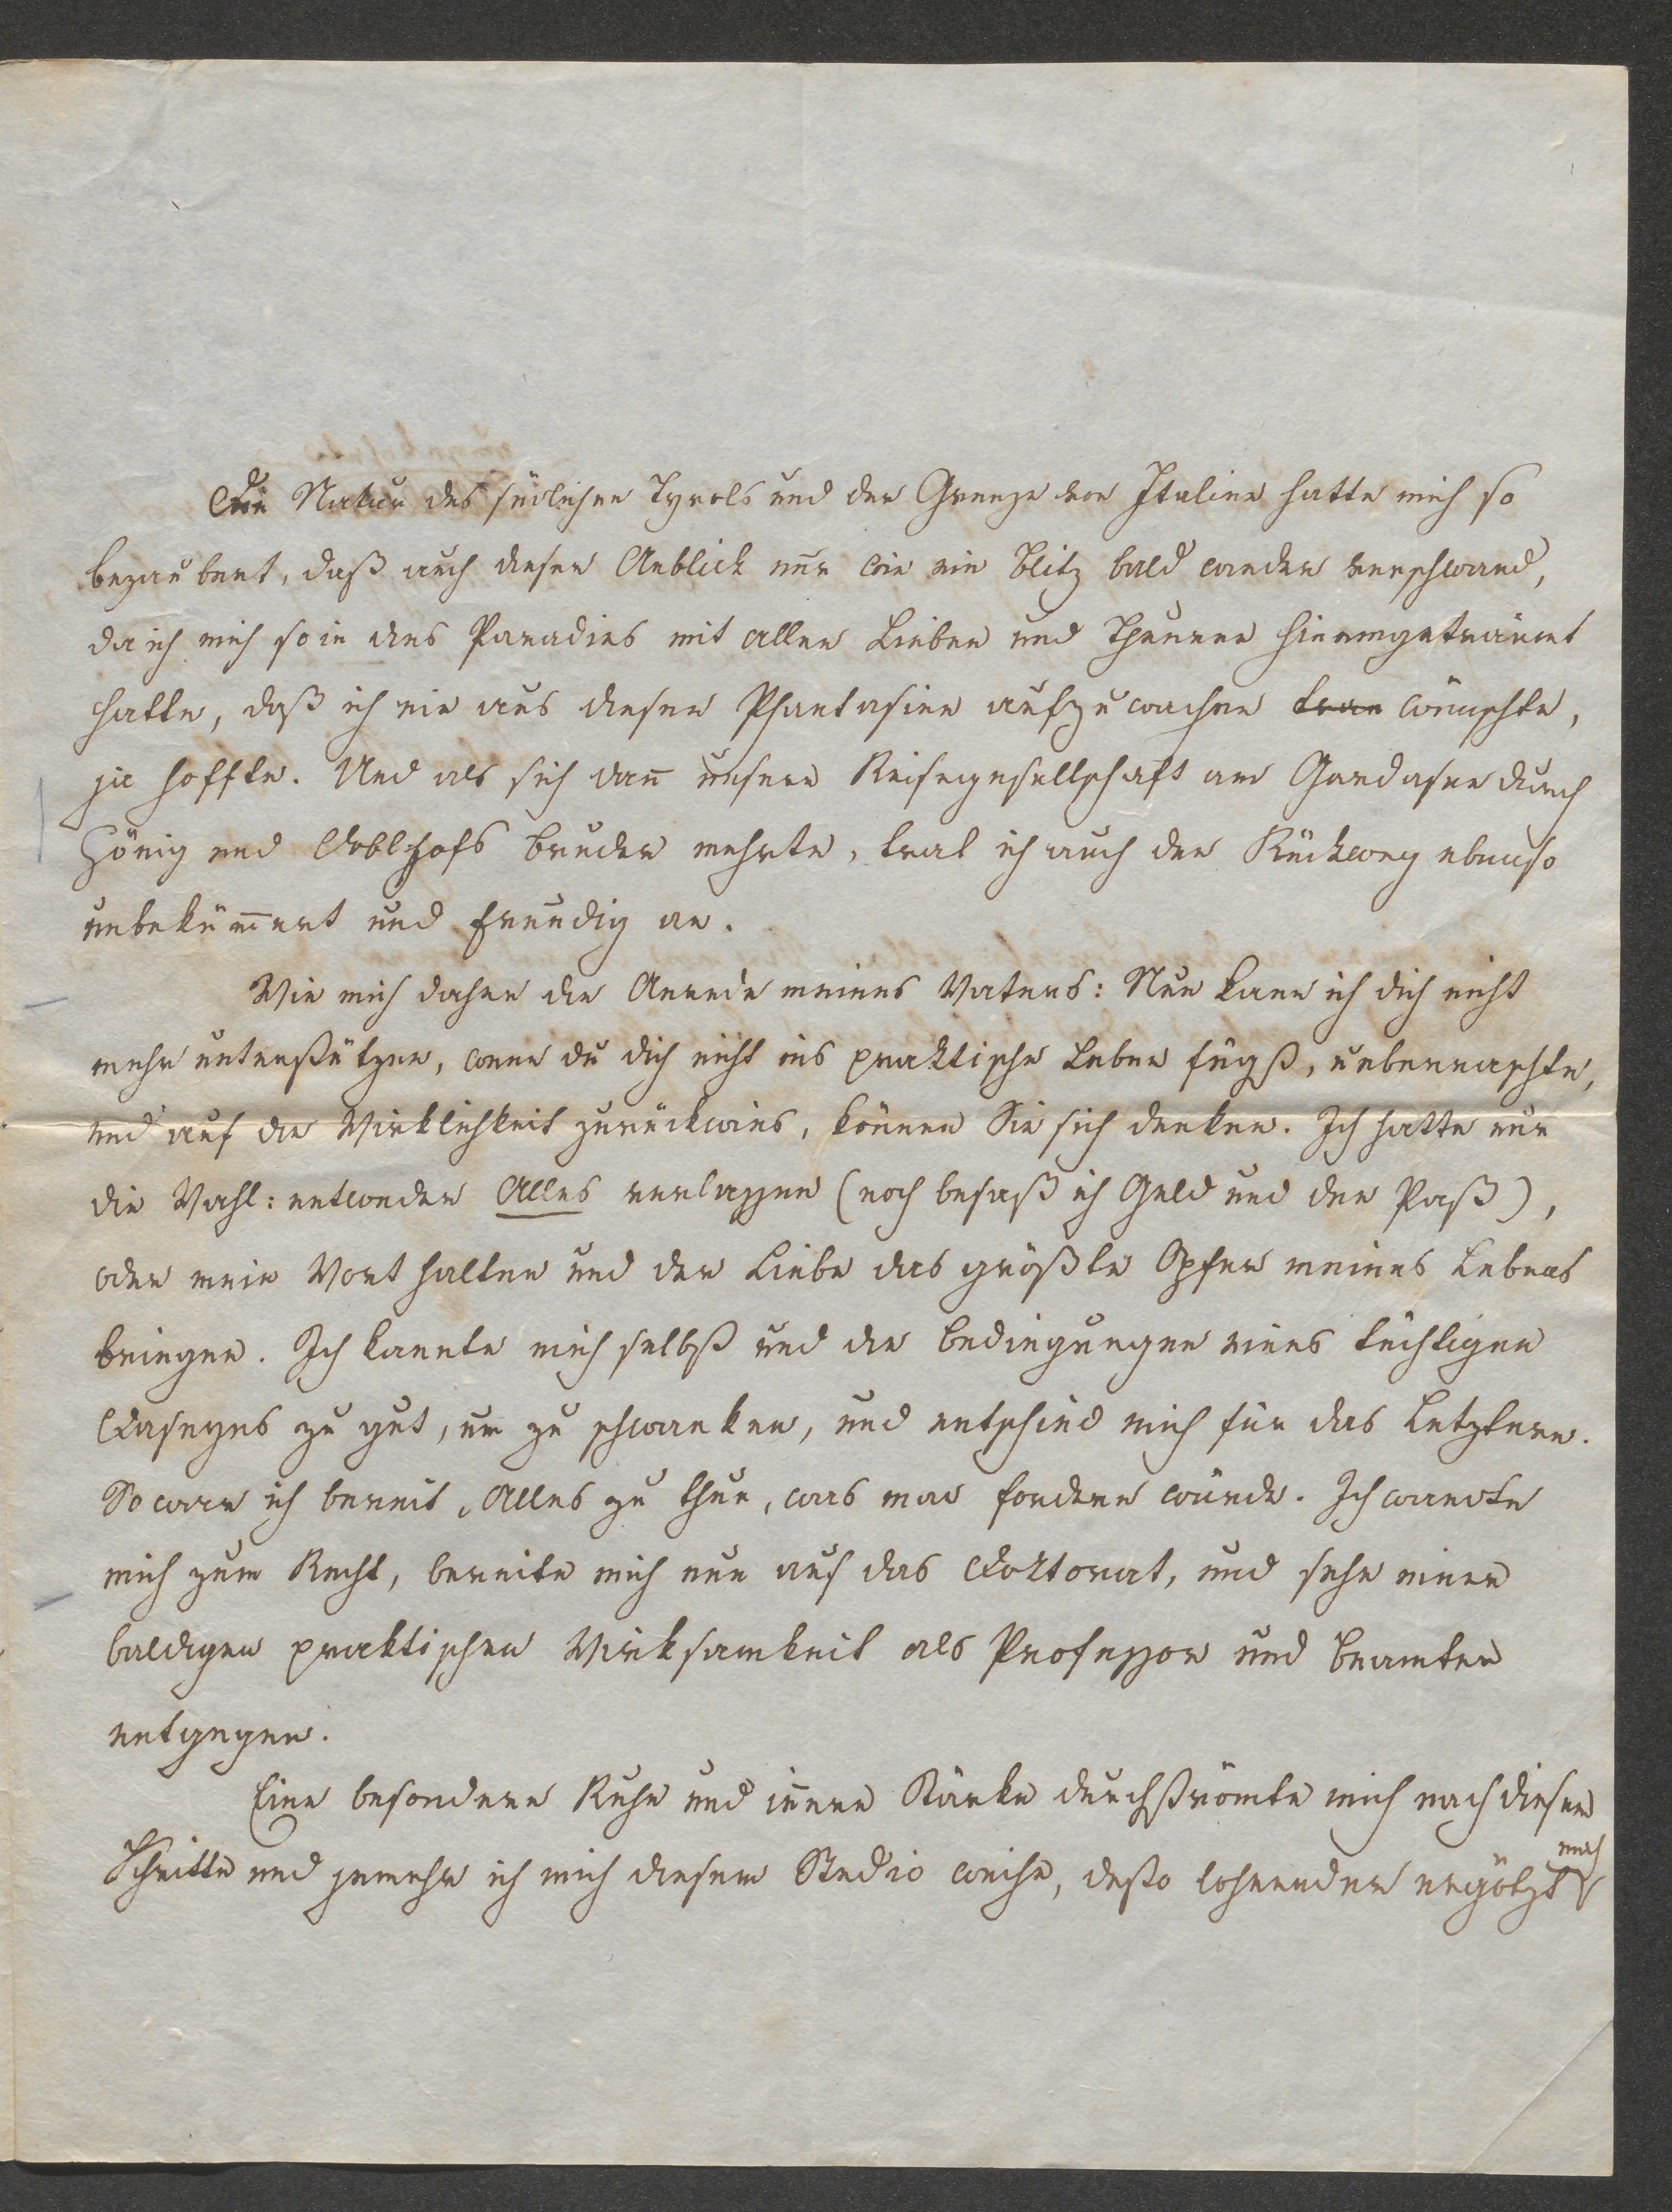 Die Natur des südlichen Tyrols und der Grenze von Italien hatte mich so
bezaubert, daß auch dieser Anblick nur wie ein Blitz bald wieder verschwand,
da ich mich so in das Paradies mit allen Lieben und Theuren hineingeträumt
hatte, daß ich nie aus diesen Phantasien aufzuwachen wünschte,
ja hoffte. Und als sich dan̅ unsere Reisegesellschaft am Gardasee durch
Hönig und Doblhofs Bruder mehrte, trat ich auch den Rückweg ebenso
unbeküm̅ert und freudig an.
Wie mich daher die Anrede meines Vaters: Nun kann ich dich nicht
mehr unterstützen, wenn du dich nicht ins praktische Leben fügst, ueberraschte,
und auf die Wirklichkeit zurückwies, können Sie sich denken. Ich hatte nur
die Wahl: entweder Alles verlassen (noch besaß ich Geld und den Paß),
oder mein Wort halten und der Liebe das größte Opfer meines Lebens
bringen. Ich kannte mich selbst und die Bedingungen eines tüchtigen
Daseyns zu gut, um zu schwanken, und entschied mich für das Letztere.
So war ich bereit, Alles zu thun, was man fordern würde. Ich wandte
mich zum Recht, bereite mich nun auf das Doktorat, und sehe einer
baldigen praktischen Wirksamkeit als Professor und Beamter
entgegen.
Eine besondere Ruhe und in̅ere Stärke durchströmte mich nach diesem
Schritte und jemehr ich mich diesem Studio weihe, desto lohnender ergötzt mich